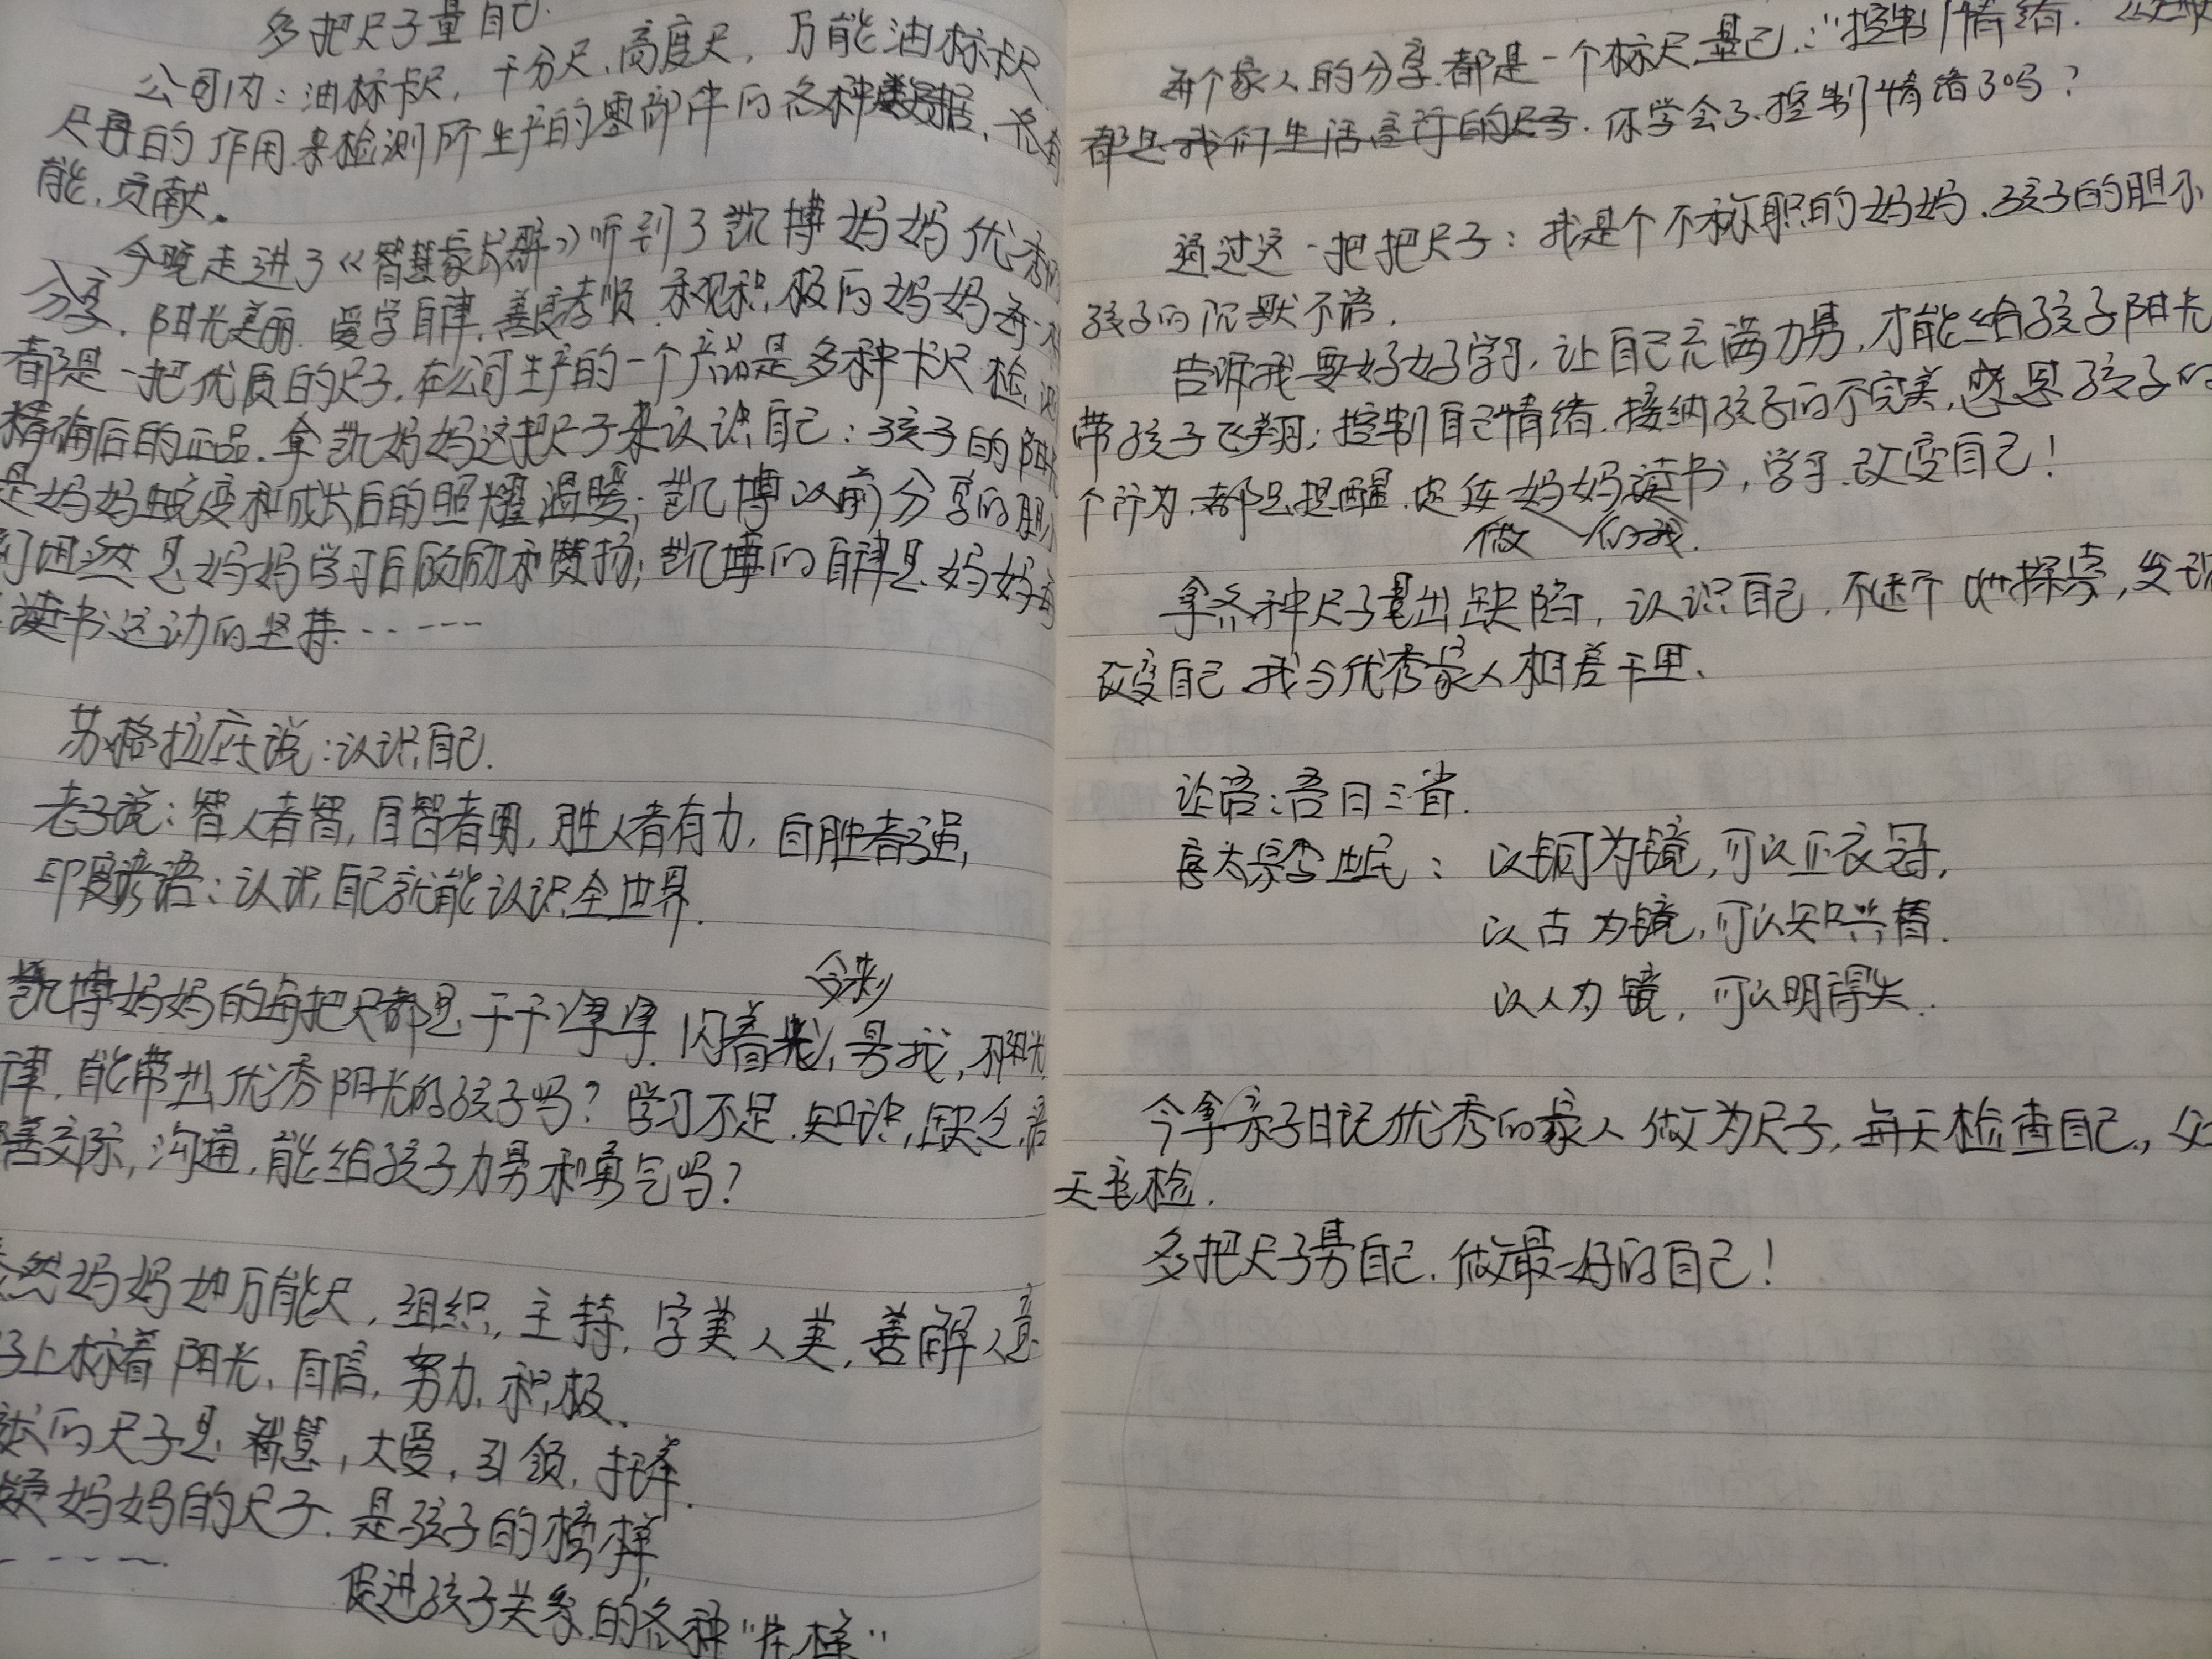 多把尺子量自己.
公司内：油标卡尺，千分尺，高度尺，万能油标卡尺
尺再的作用来检测所生产的零部件的各种数据，
能，贡献。
今晚走进了《智慧家长群》听到了凯博妈妈优秀的
分享，阳光美丽，爱学自律，善良孝顺，乐观积极的妈妈每一
都是一把优质的尺子，在公司生产的一个产品是多种卡尺检测
精确后的正品，拿凯妈妈这把尺子来认识自己：孩子的阳光
是妈妈蜕变和成长后的照耀温暖；凯博以前分享的胆小
妈妈学习后鼓励和赞扬；凯博的自律是妈妈每
读书运动的坚持……
苏格拉底说：认识自己.
老子说：智人者智，自智者勇，胜人者有力，自胜者强，
印度谚语：认识自己就能认识全世界.
凯博妈妈的每把尺都是干干净净，闪着光，量我，不阳光
律，能带出优秀阳光的孩子吗？学习不足，知识，缺乏，
善交际，沟通，能给孩子力量和勇气吗？
然妈妈如万能尺，组织，主持，字美人美，善解人意
子上标着阳光，自信，努力，积极.
的尺子是智慧，大爱，引领，托举.
妈妈的尺子，是孩子的榜样，
……
促进孩子关系的各种"榜样"
每个家人的分享，都是一个标尺，量己：“控制情绪.
都是我们生活言行的尺子. 你学会了控制情绪了吗？
通过这一把把尺子：我是个不称职的妈妈，孩子的胆小
孩子的沉默不语，
告诉我要好好学习，让自己充满力量，才能给孩子阳光
带孩子飞翔；控制自己情绪，接纳孩子的不完美，感恩孩子的
个行为，都是提醒，妈妈读书，学习，改变自己！
做 的我.
拿各种尺子量出缺陷，认识自己，不断探索，发现
改变自己，我与优秀家人相差千里、
论语：吾日三省.
唐太宗李世民：以铜为镜，可以正衣冠，
以古为镜，可以知兴替.
以人为镜，可以明得失.
今拿亲子日记优秀的家人做为尺子，每天检查自己，
天底检.
多把尺子量自己，做最好的自己！